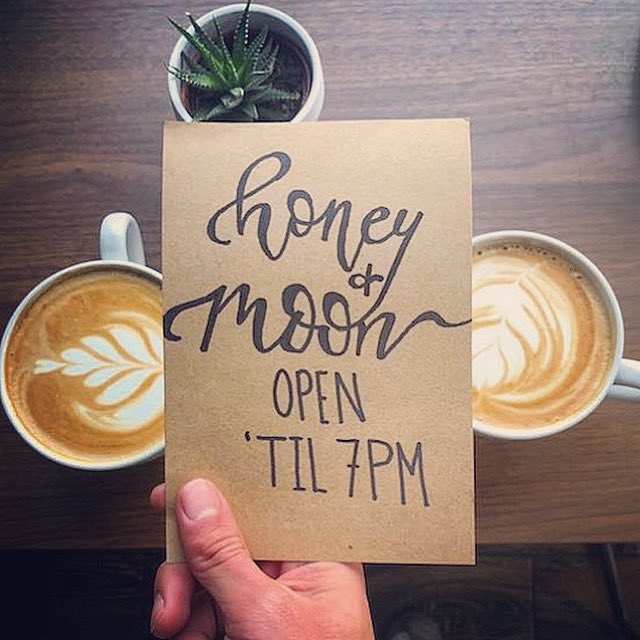 honey
+
moon
OPEN
'TIL 7PM